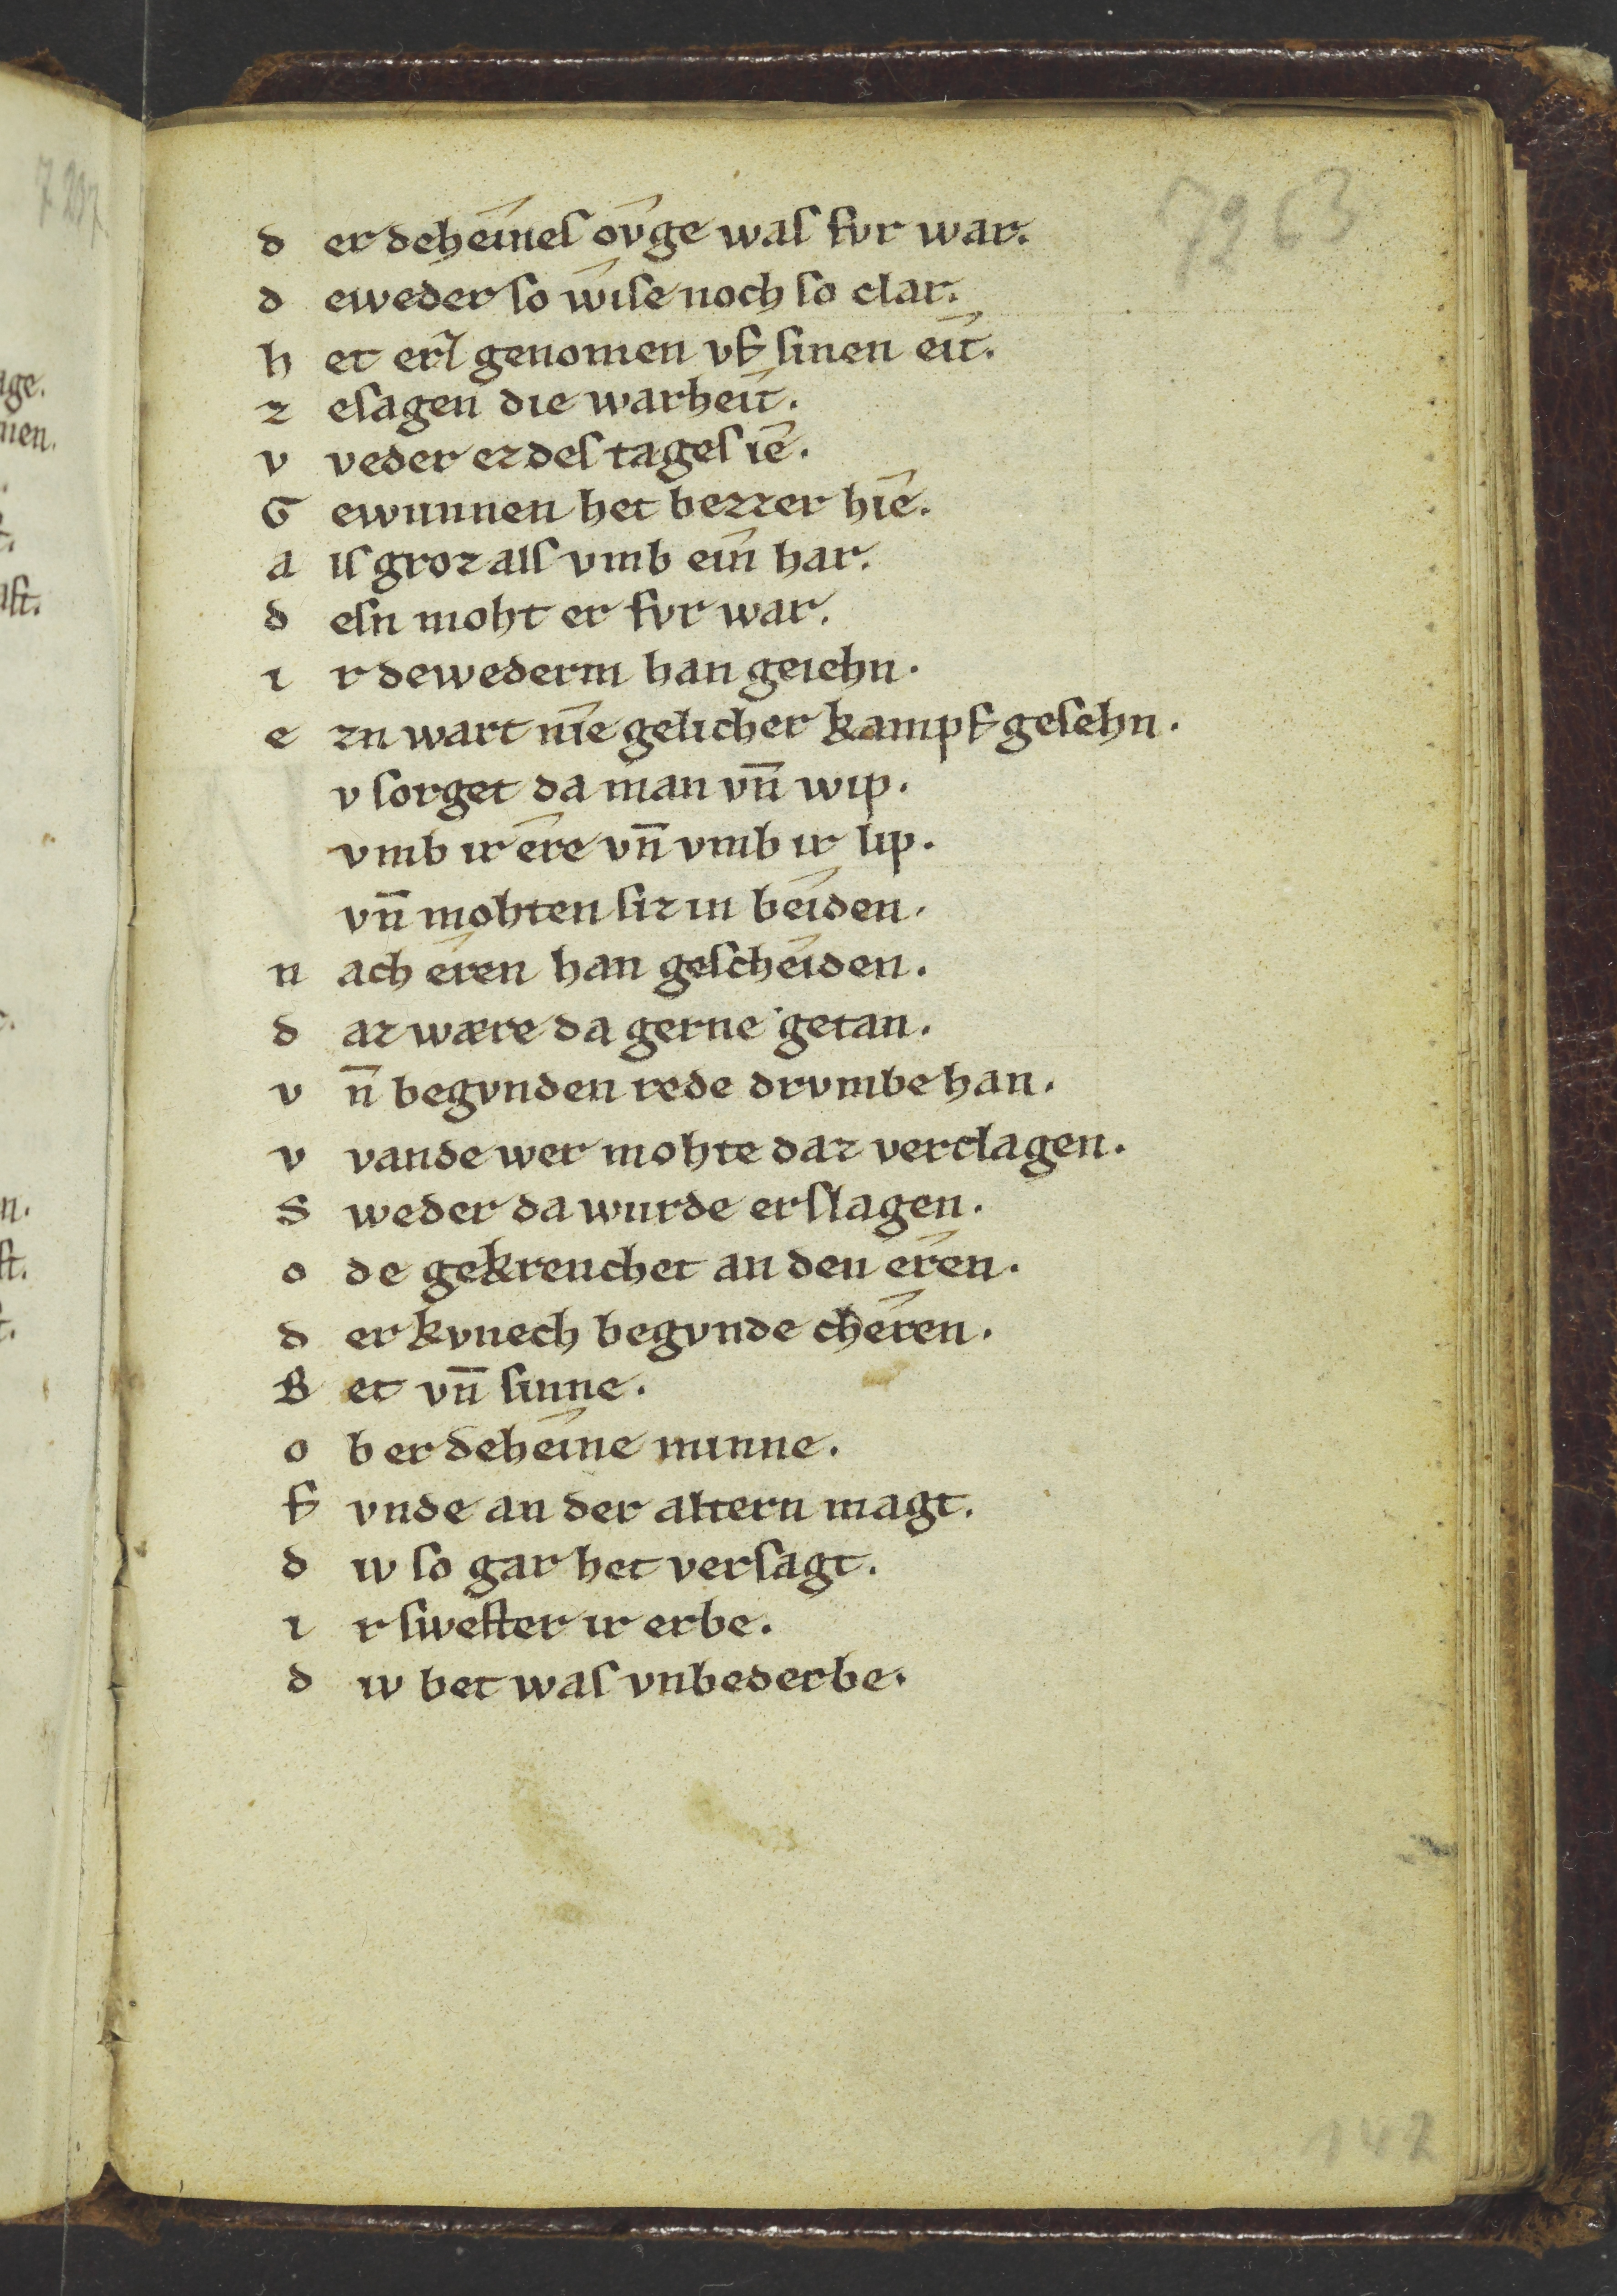 7263
d er deheîneſ oîvge waſ fvr war.
d eweder ſo wîſe noch ſo clar.
h et erſ genomen vf ſinen eît.
z eſagen die warheît.
v veder ez deſ tageſ îe.
G ewunnen het bezzer hîe.
a lſ groz alſ vmb eîn har.
d eſn moht er fvr war.
i r dewederm han geiehn.
e zn wart nîe gelicher kampf geſehn.
v ſorget da man vn̄ wip.
vmb ir êre vn̄ vmb ir lip.
vn̄ mohten ſiz in beîden.
n ach êren han geſcheîden.
d az wære da gerne getan.
v n̄ begvnden rede drvmbe han.
v vande wer mohte daz verclagen.
S weder da wurde erſlagen.
o de gekrenchet an den êren.
d er kvnech begvnde chêren.
B et vn̄ ſinne.
o b er deheîne minne.
f vnde an der altern magt.
d iv ſo gar het verſagt.
i r ſweſter ir erbe.
d iv bet waſ vnbederbe.
142